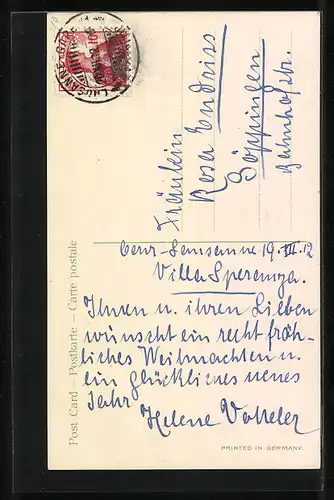 LAUSANNE
Fräulein
Rosa Endriss
Göppingen
Bahnhofstr.
19. XII. 12
Villa Speranza.
Ihnen u. ihren Lieben
wünscht ein recht fröh-
liches Weihnachten u.
ein glückliches neues
Jahr
Helene
Post Card – Postkarte – Carte postale
PRINTED IN GERMANY.